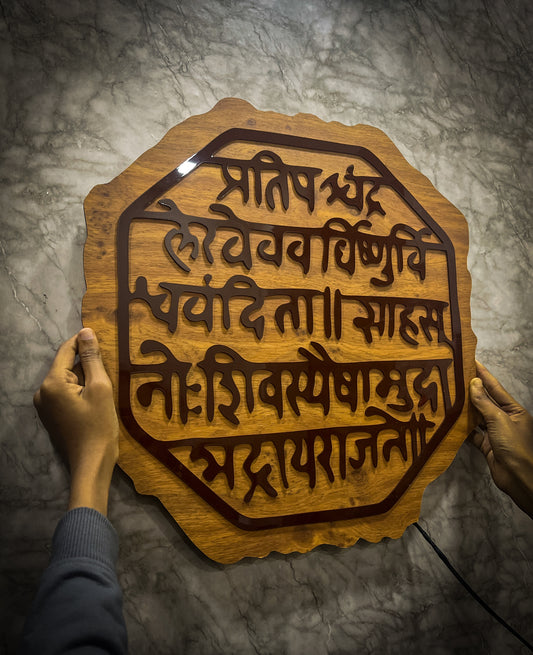 प्रतिपच्चंद्र
लेखेववर्धिष्णुर्वि
श्ववंदिता॥साहसू
नोःशिवस्यैषामुद्रा
भद्रायराजते॥